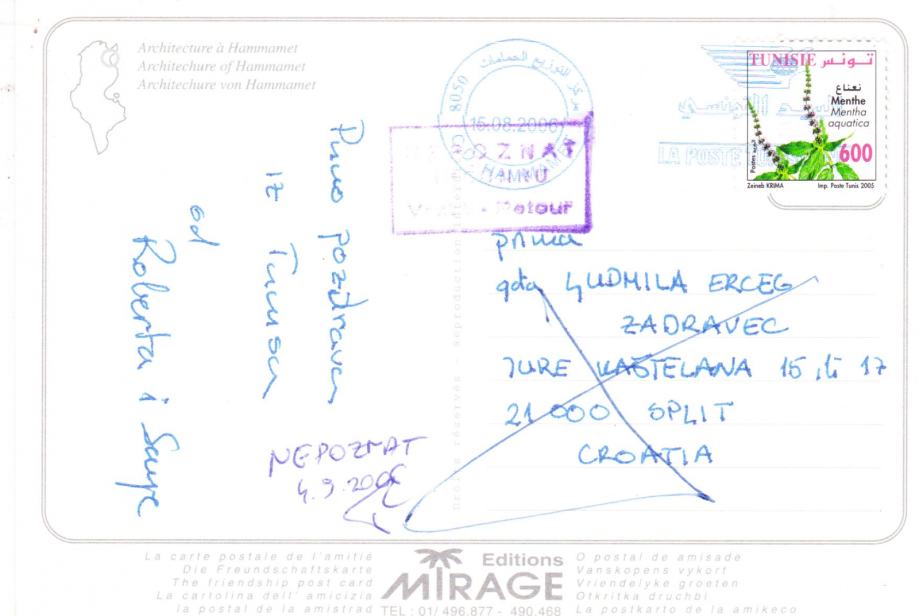 Architecture à Hammamet
Architechure of Hammamet
Architechure von Hammamet
8050
مركز التوزيع الحمامات
15.08.2006
HAMMAMET
LA POSTE
TUNISIE تونس
نعناع
Menthe
Mentha
aquatica
600
Postes
Zeineb KRIMA Imp. Poste Tunis 2005
Retour
Puno pozdrava
iz Tunisa
od
Roberta i Sanje
prima
gđa LJUDMILA ERCEG
ZADRAVEC
JURE KAŠTELANA 15 ili 17
21000 SPLIT
CROATIA
NEPOZNAT
4.9.2006
Droits réservés - Reproduction
La carte postale de l'amitié
Die Freundschaftskarte
The friendship post card
La cartolina dell' amicizia
la postal de la amistrad
Editions
MIRAGE
TEL : 01/ 496.877 - 490.468
O postal de amisade
Vanskopens vykort
Vriendelyke groeten
Otkritka druchbi
La postkarto de la amikeco